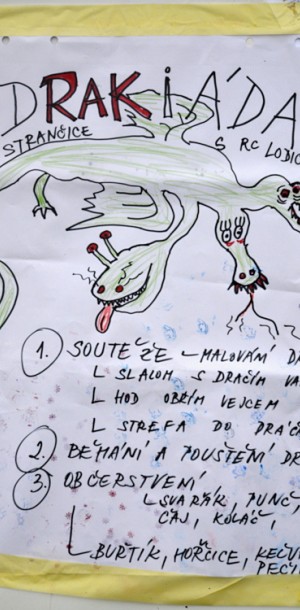 DRAKIÁDA
STRANČICE S RC LODIC
1. SOUTĚŽE - MALOVÁNÍ D
SLALOM S DRAČÍM VA
HOD OBŘÍM VEJCEM
STREFA DO DRAČ
2. BĚHÁNÍ A POUŠTĚNÍ DR
3. OBČERSTVENÍ
SVAŘÁK, PUNČ,
ČAJ, KOLÁČ,
BURTÍK, HOŘČICE, KEČU
PEČI